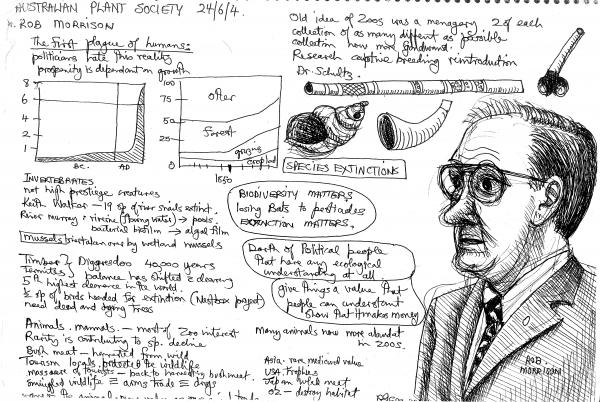 AUSTRALIAN PLANT SOCIETY 24/6/4.
ROB MORRISON
The first plague of humans.
politicians hate this reality
prosperity is dependant on growth
8
6
4
2
1
BC.
AD
100
75
50
25
0
other
forest
grazing
cropland
1850
Old idea of Zoos was a menagery 2 of each
collection of as many diffent as possible
collection now mind
Research captive breeding reintroduction
Dr. Schultz.
SPECIES EXTINCTIONS
INVERTEBRATES
not high prestige creatures
Keith Walker - 19 sp of river snails extinct.
River murray: riverine (flowing water) → pools.
bacterial biofilm → algal film
mussels: river taken over by wetland mussels
BIODIVERSITY MATTERS
losing Bats to pesticides
EXTINCTION MATTERS.
Dearth of Political people
that have any ecological
understanding at all
give things a value that
people can understand
show that it makes money
Timber & Diggeredoo 40,000 years
Termites } balance has shifted & clearing
5th highest clearance in the world.
1/2 sp of birds headed for extinction (Nestbox project)
need dead and dying trees
Animals. mammals. - most of Zoo interest
Rarity is contributing to sp. decline
Bush meat - harvested from wild
Tourism locals protected the wildlife
massacre of tourists - back to harvesting bushmeat.
smuggled wildlife ≡ arms trade ≡ drugs
Many animals now more abundat
in zoos.
Asia - rare medicinal value
USA. trophies
Japan whale meat
OZ - destroy habitat
ROB
MORRISON